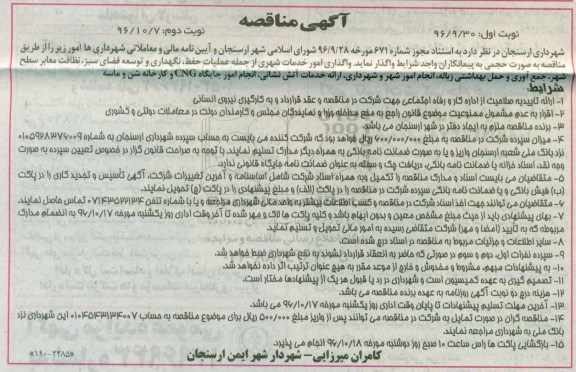 آگهی مناقصه
نوبت اول: ۹۶/۹/۳۰
نوبت دوم: ۹۶/۱۰/۷
شهرداری ارسنجان در نظر دارد به استناد مجوز شماره ۶۷۱ مورخه ۹۶/۹/۲۸ شورای اسلامی شهر ارسنجان و آیین نامه مالی و معاملاتی شهرداری ها امور زیر را از طریق
مناقصه به صورت حجمی به پیمانکاران واجد شرایط واگذار نماید. واگذاری امور خدمات شهری از جمله عملیات حفظ، نگهداری و توسعه فضای سبز، نظافت معابر سطح
شهر، جمع آوری و حمل بهداشتی زباله، انجام امور شهر و شهرداری، ارائه خدمات آتش نشانی، انجام امور جایگاه CNG و کارخانه شن و ماسه
شرایط:
۱- ارائه تاییدیه صلاحیت از اداره کار و رفاه اجتماعی جهت شرکت در مناقصه و عقد قرارداد و به کارگیری نیروی انسانی
۲- اقرار به عدم مشمول ممنوعیت موضوع قانون راجع به منع مداخله وزرا و نمایندگان مجلس و کارمندان دولت در معاملات دولتی و کشوری
۳- برنده مناقصه ملزم به ایجاد دفتر در شهر ارسنجان می باشد.
۴- میزان سپرده شرکت در مناقصه به مبلغ ۶۰۰/۰۰۰/۰۰۰ ریال خواهد بود که شرکت کننده می بایست به حساب سپرده شهرداری ارسنجان به شماره ۰۱۰۵۹۶۸۳۷۶۰۰۹
نزد بانک ملی شعبه ارسنجان واریز و یا به صورت ضمانت نامه بانکی به همراه دیگر مدارک تسلیم نمایند. با توجه به صراحت قانون گزار در خصوص تعیین سپرده به صورت
وجه نقد، اسناد خزانه یا ضمانت نامه بانکی، دریافت چک و سفته به عنوان ضمانت نامه جایگاه قانونی ندارد.
۵- متقاضیان می بایست اسناد و مدارک مناقصه را تکمیل و به همراه اسناد شرکت شامل اساسنامه و آخرین تغییرات شرکت، آگهی تأسیس و تجدید کاری را در پاکت
(ب) فیش بانکی و یا ضمانت نامه بانکی سپرده شرکت در مناقصه را در پاکت (الف) و مبلغ پیشنهادی را در پاکت (ج) تحویل نمایند.
۶- متقاضیان می توانند جهت اخذ اسناد شرکت در مناقصه و کسب اطلاعات بیشتر به واحد مالی شهرداری مراجعه و یا با شماره تلفن ۰۷۱۴۳۵۲۲۱۳۴ تماس حاصل نمایند.
۷- بهای پیشنهادی باید از حیث مبلغ مشخص معین و بدون ابهام باشد و کلیه پاکت ها لاک و مهر شده تا آخر وقت اداری روز یکشنبه مورخه ۹۶/۱۰/۱۷ به انضمام مدارک
مربوطه که به تأیید (امضا و مهر) شرکت متقاضی رسیده به امور مالی تحویل و تسلیم نماید.
۸- سایر اطلاعات و جزئیات مربوط به مناقصه در اسناد درج شده است.
۹- سپرده نفرات اول، دوم و سوم در صورتی که حاضر به انعقاد قرارداد نشوند به نفع شهرداری ضبط خواهد شد.
۱۰- به پیشنهادات مبهم، مشروط و مخدوش و خارج از موعد مقرر به هیچ عنوان ترتیب اثر داده نخواهد شد.
۱۱- تصمیم گیری به عهده کمیسیون است و شهرداری در رد یا قبول هر یک از پیشنهادها مختار است.
۱۲- هزینه درج دو نوبت آگهی روزنامه به عهده برنده مناقصه می باشد.
۱۳- آخرین مهلت تسلیم پیشنهادات تا پایان وقت اداری روز یکشنبه مورخه ۹۶/۱۰/۱۷ می باشد.
۱۴- مناقصه گران در صورت تمایل به شرکت در مناقصه می توانند پس از واریز مبلغ ۵۰۰/۰۰۰ ریال برای موضوع مناقصه به حساب ۰۱۰۴۵۴۳۱۳۴۰۰۷ این شهرداری نزد
بانک ملی به شهرداری مراجعه نمایند.
۱۵- بازگشایی پاکت ها راس ساعت ۱۰ صبح روز دوشنبه مورخه ۹۶/۱۰/۱۸ انجام می پذیرد.
کامران میرزایی- شهردار شهر ایمن ارسنجان
«۱۱۰-۲۲۸۵»